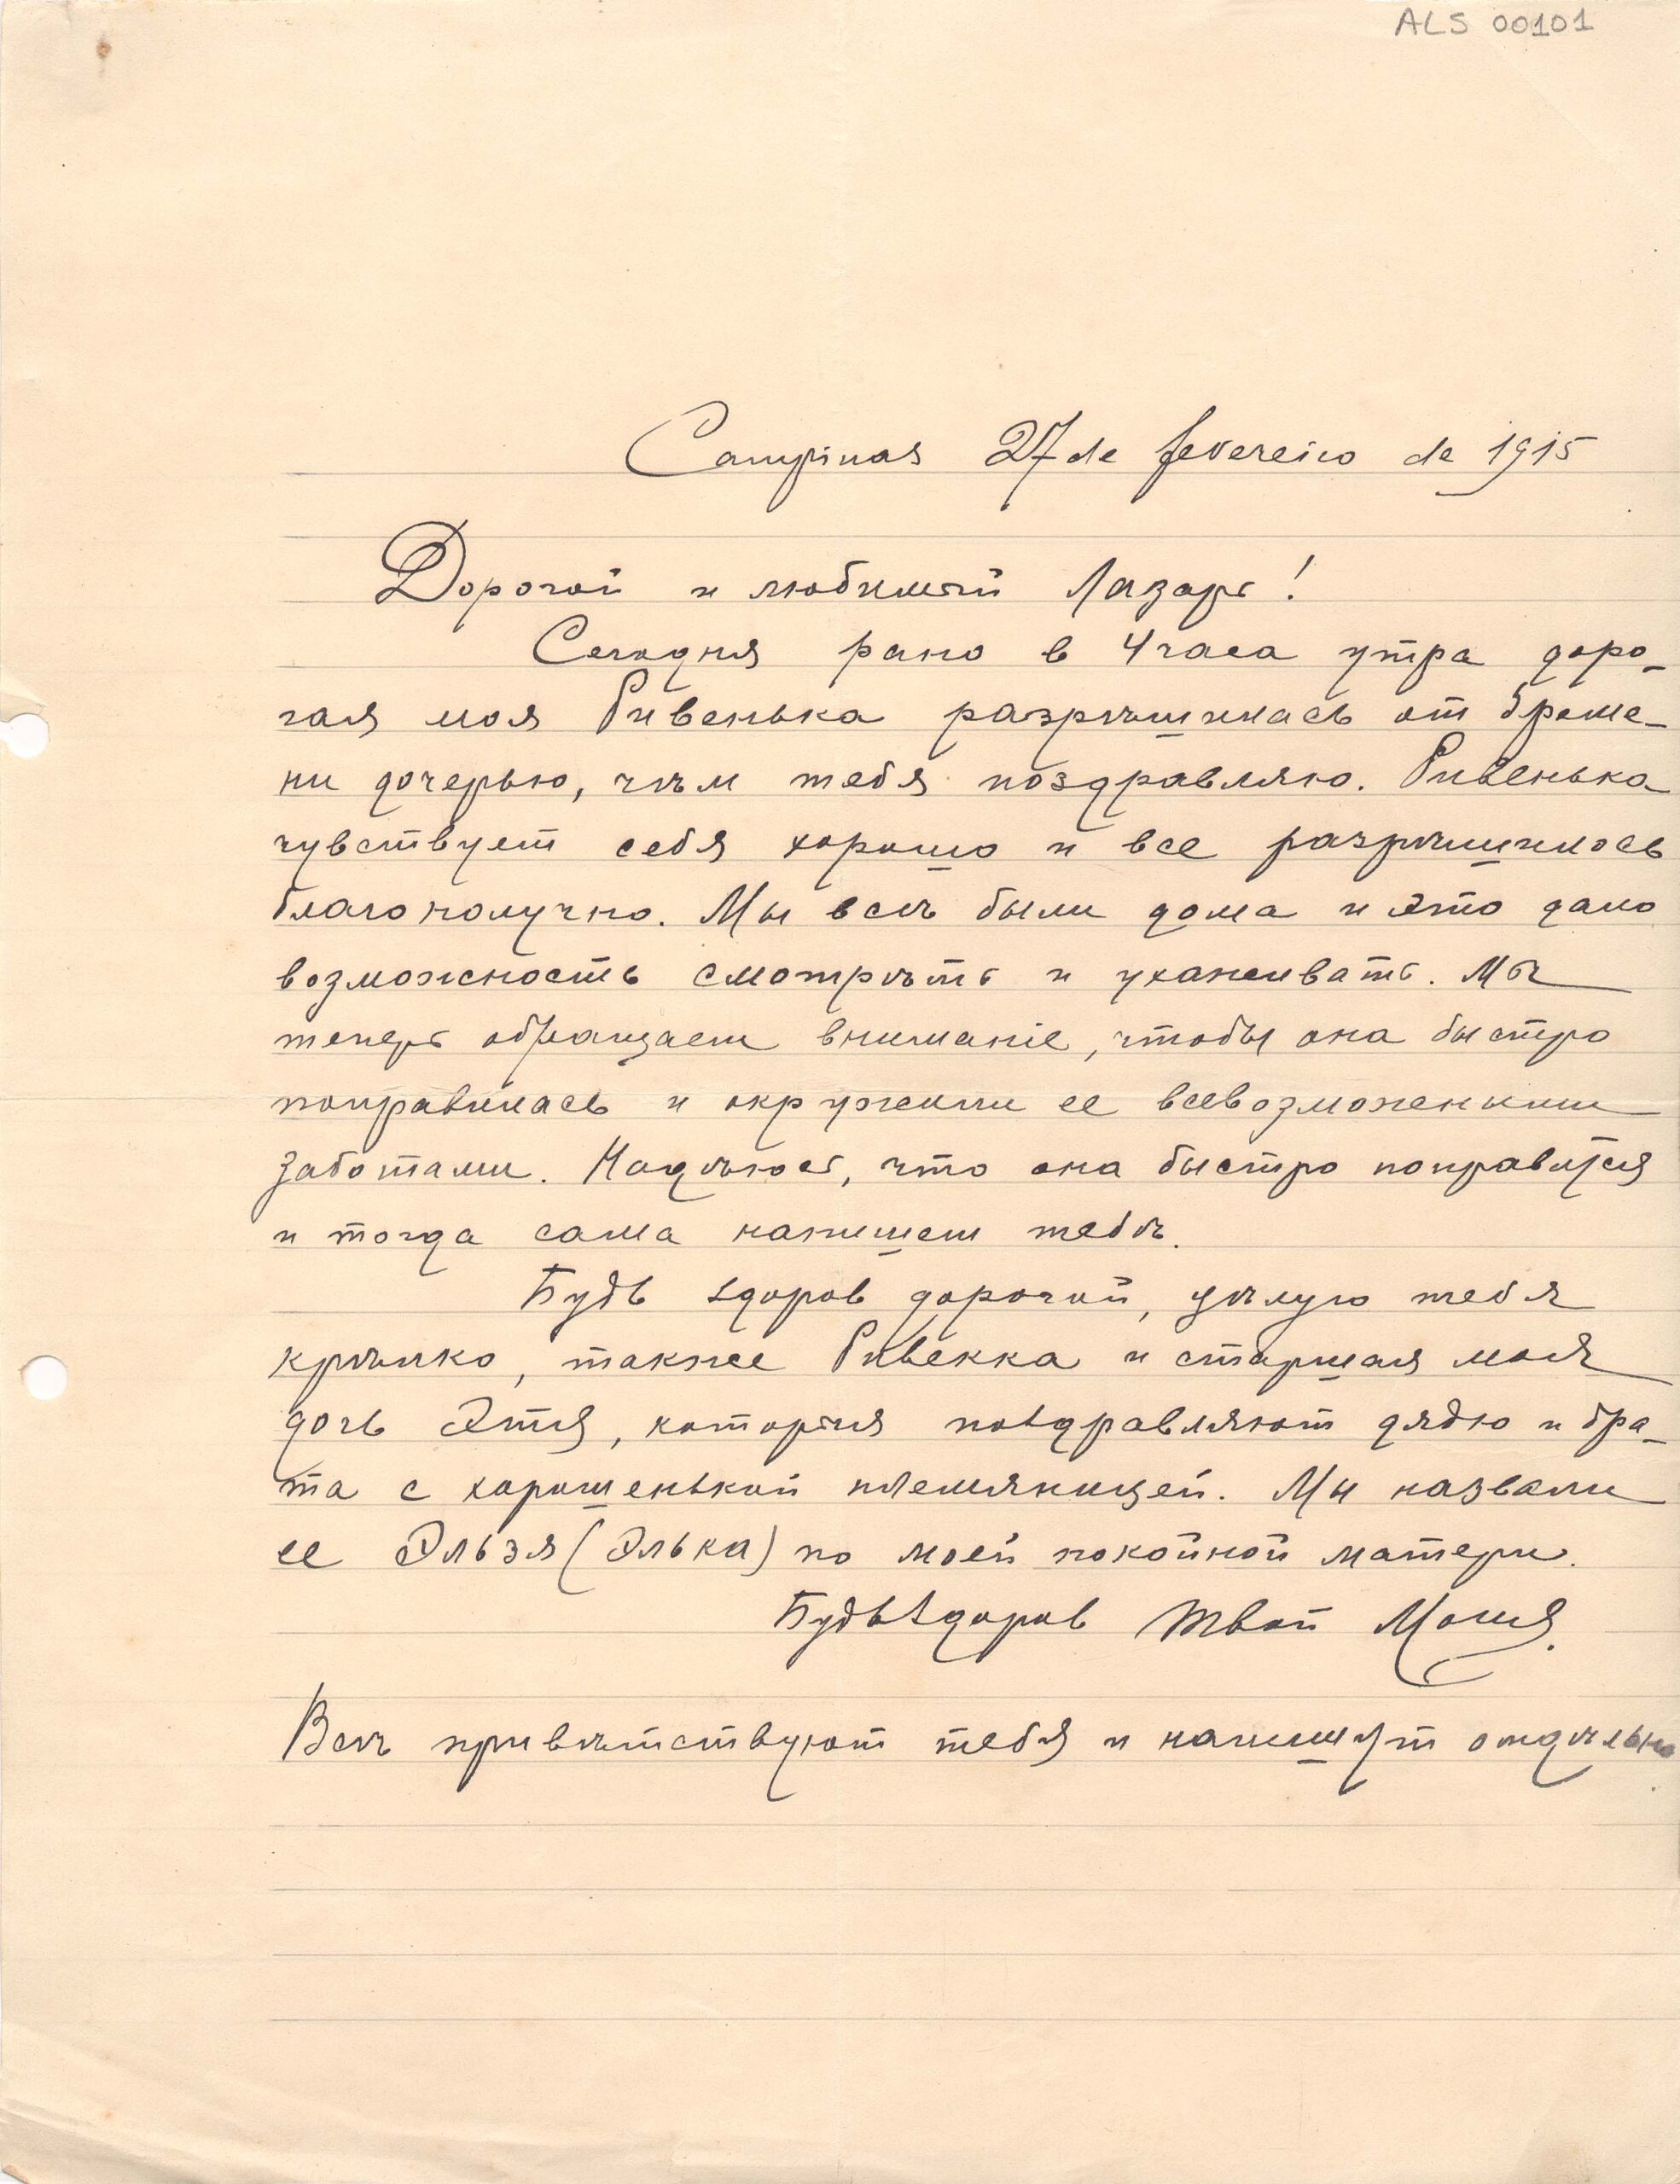 ALS 00101
Campinas 27 de fevereiro de 1915
Дорогой и любимый Лазарь!
Сегодня рано в 4 часа утра доро-
гая моя Ривенька разрѣшилась от бреме-
ни дочерью, чѣм тебя поздравляю. Ривенька
чувствует себя хорошо и все разрѣшилось
благополучно. Мы всѣ были дома и это дало
возможность смотрѣть и ухаживать. Мы
теперь обращаем вниманіе, чтобы она быстро
поправилась и окружили ее всевозможными
заботами. Надѣюсь, что она быстро поправится
и тогда сама напишет тебѣ.
Будь здоров дорогой, цѣлую тебя
крѣпко, также Ривекка и старшая моя
дочь Этя, которыя поздравляют дядю и бра-
та с хорошенькой племянницей. Мы назвали
ее Эльзя (Элька) по моей покойной матери.
Будь здоров твой Мошя.
Всѣ привѣтствуют тебя и напишут отдѣльно.